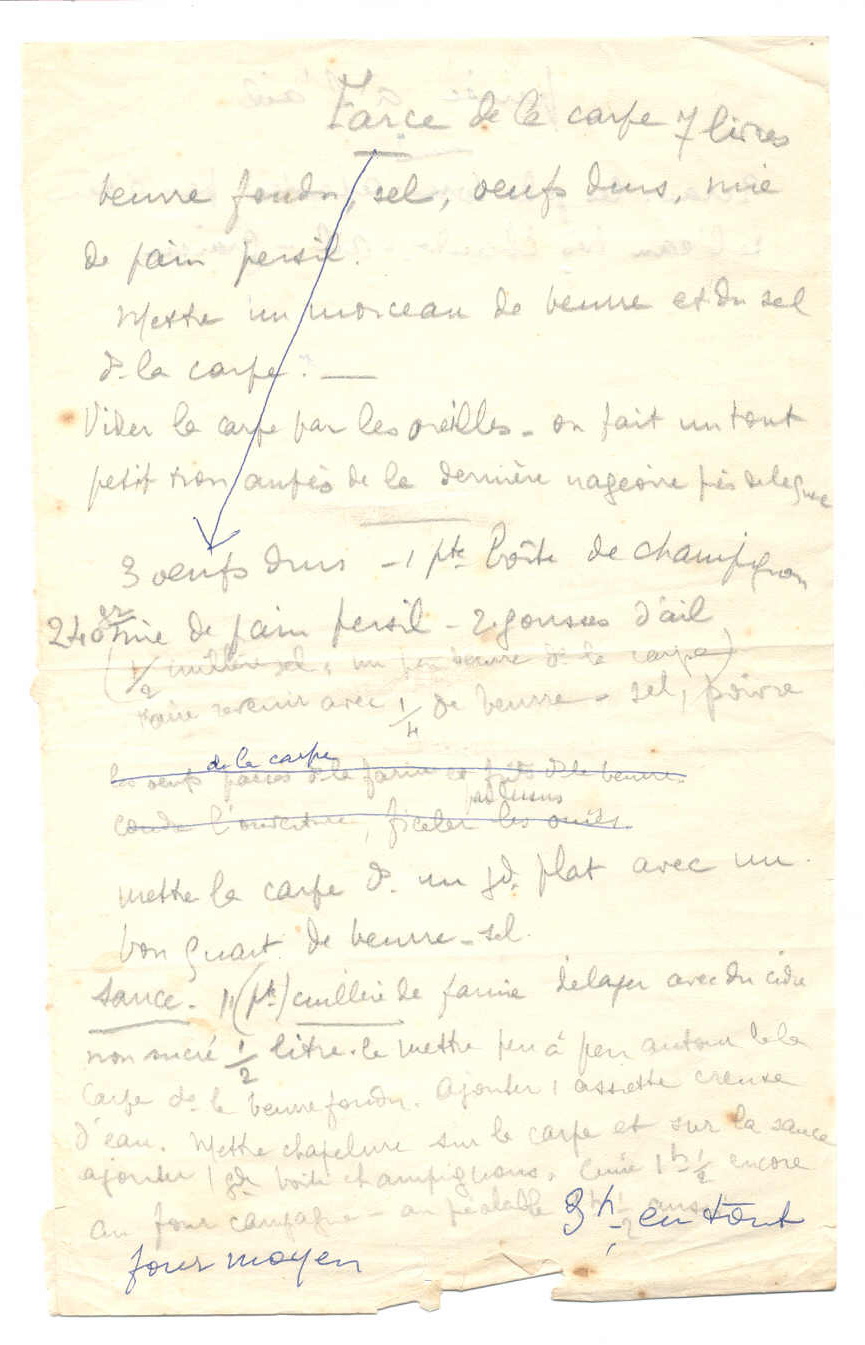 Farce de la carpe 7 livres
beurre fondu, sel, oeufs durs, mie
de pain persil.
Mettre un morceau de beurre et du sel
ds la carpe. —
Vider la carpe par les oreilles - on fait un tout
petit trou auprès de la dernière nageoire près de la queue
3 oeufs durs - 1 pte boîte de champignon
240 gr mie de pain persil - 2 gousses d'ail
(1/2 cuillère sel, un peu beurre ds la carpe)
Faire revenir avec 1/4 de beurre - sel, poivre
de la carpe
les oeufs passés ds la farine et frits ds le beurre.
par dessus
coudre l'ouverture, ficeler les ouïes.
mettre la carpe ds un gd. plat avec un
bon quart de beurre - sel.
Sauce - 1 (pte) cuillère de farine délayer avec du cidre
non sucré 1/2 litre. le mettre peu à peu autour de la
carpe ds le beurre fondu. Ajouter 1 assiette creuse
d'eau. Mettre chapelure sur la carpe et sur la sauce
ajouter 1 gde boîte champignons. Cuire 1h 1/2 encore
au four campagne - au préalable 1h 1/2 aussi
3h en tout
four moyen